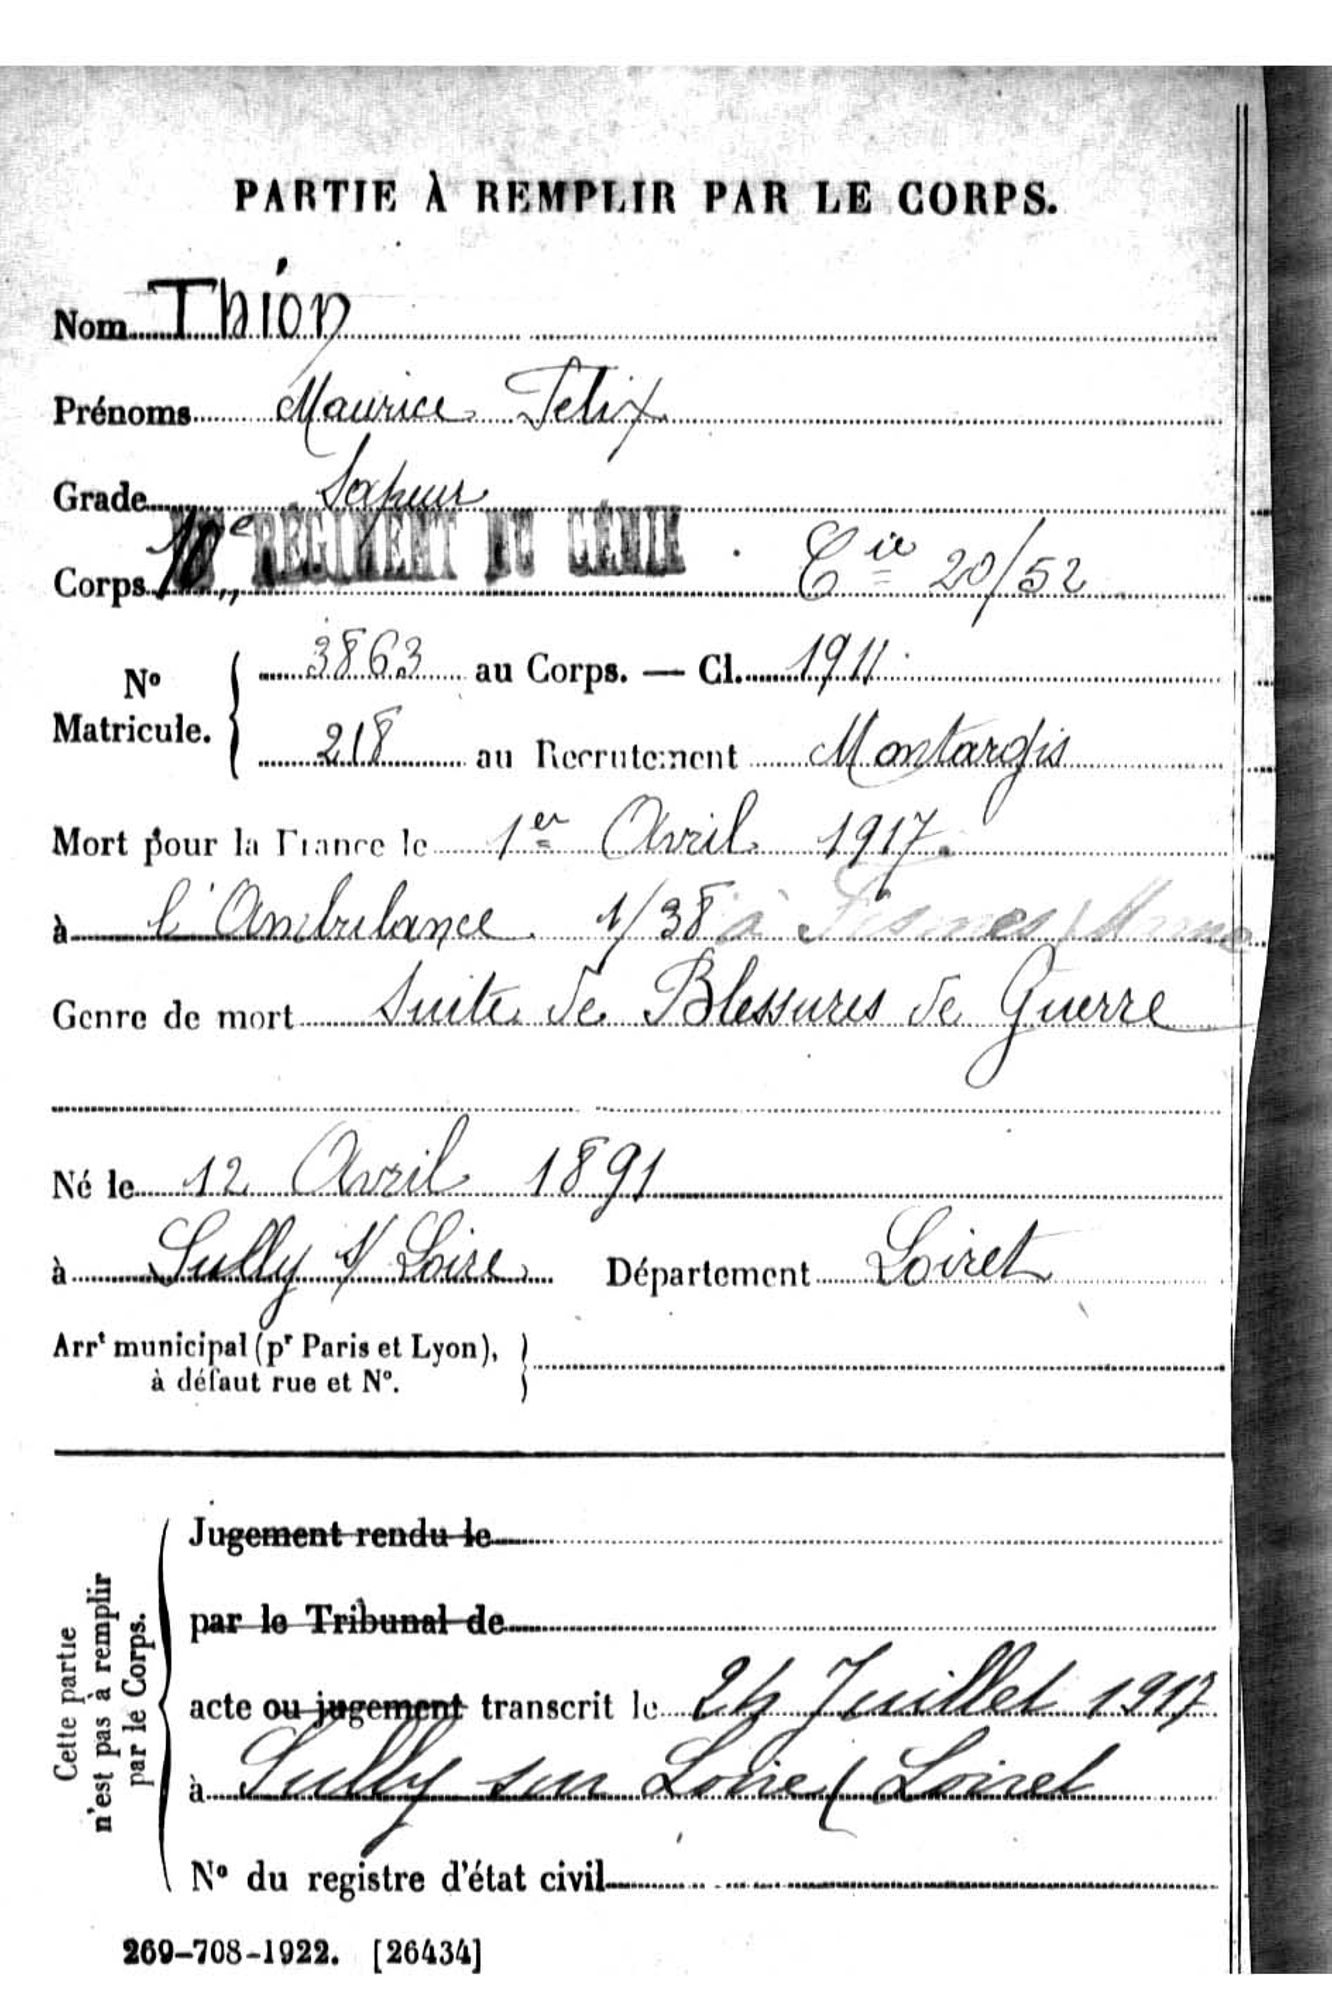 PARTIE À REMPLIR PAR LE CORPS.
Nom Thion
Prénoms Maurice Felix
Grade Sapeur
Corps 10e RÉGIMENT DU GÉNIE . Cie 20/52
No Matricule. 3863 au Corps. — Cl. 1911
218 au Recrutement Montargis
Mort pour la France le 1er Avril 1917
à l'Ambulance 1/38 à Fismes (Marne
Genre de mort Suite de Blessures de Guerre
Né le 12 Avril 1891
à Sully s/ Loire Département Loiret
Arrt municipal (pr Paris et Lyon),
à défaut rue et No.
Cette partie
n'est pas à remplir
par le Corps.
Jugement rendu le
par le Tribunal de
acte ou jugement transcrit le 24 Juillet 1917
à Sully sur Loire (Loiret
No du registre d'état civil
269-708-1922. [26434]